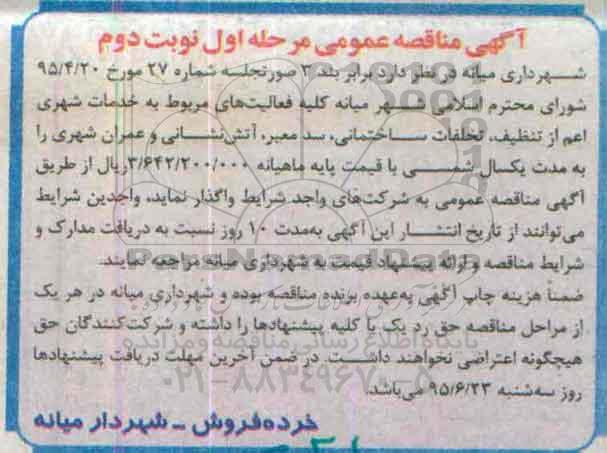 آگهی مناقصه عمومی مرحله اول نوبت دوم
شهرداری میانه در نظر دارد برابر بند ۳ صورتجلسه شماره ۲۷ مورخ ۹۵/۴/۲۰
شورای محترم اسلامی شهر میانه کلیه فعالیت‌های مربوط به خدمات شهری
اعم از تنظیف، تخلفات ساختمانی، سد معبر، آتش‌نشانی و عمران شهری را
به مدت یکسال شمسی با قیمت پایه ماهیانه ۳/۶۴۲/۲۰۰/۰۰۰ریال از طریق
آگهی مناقصه عمومی به شرکت‌های واجد شرایط واگذار نماید، واجدین شرایط
می‌توانند از تاریخ انتشار این آگهی به‌مدت ۱۰ روز نسبت به دریافت مدارک و
شرایط مناقصه و ارائه پیشنهاد قیمت به شهرداری میانه مراجعه نمایند.
ضمناً هزینه چاپ آگهی به‌عهده برنده مناقصه بوده و شهرداری میانه در هر یک
از مراحل مناقصه حق رد یک یا کلیه پیشنهادها را داشته و شرکت‌کنندگان حق
هیچگونه اعتراضی نخواهند داشت. در ضمن آخرین مهلت دریافت پیشنهادها
روز سه‌شنبه ۹۵/۶/۲۳ می‌باشد.
خرده‌فروش ـ شهردار میانه
ParsNamadData
پایگاه اطلاع رسانی مناقصه و مزایده